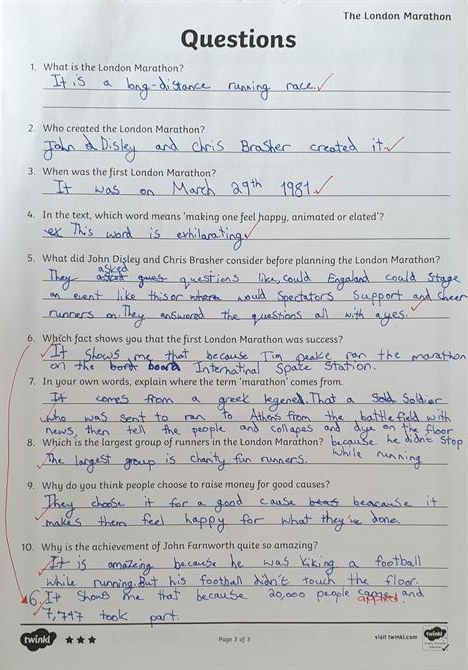 The London Marathon
Questions
1. What is the London Marathon?
It is a long-distance running race.
2. Who created the London Marathon?
John d Disley and Chris Brasher created it.
3. When was the first London Marathon?
It was on March 29th 1981.
4. In the text, which word means 'making one feel happy, animated or elated'?
ex This word is exhilarating.
5. What did John Disley and Chris Brasher consider before planning the London Marathon?
asked
They asked gues questions like, could Engaland could stage
an event like this or where would Spectators Support and cheer
runners on. They answered the questions all with ayes.
6. Which fact shows you that the first London Marathon was success?
It shows me that because Tim peake ran the marathon
on the bord board Internatinal Space Station.
7. In your own words, explain where the term 'marathon' comes from.
It comes from a greek legened. That a Sold Soldier
who was sent to ran to Athens from the battlefield with
news, then tell the people and collapes and dye on the floor
8. Which is the largest group of runners in the London Marathon? because he didn't stop
while running
The largest group is charity fun runners.
9. Why do you think people choose to raise money for good causes?
They choose it for a good cause beas beacause it
makes them feel happy for what they've done.
10. Why is the achievement of John Farnworth quite so amazing?
It is amazing because he was kiking a football
while running. But his football didn't touch the floor.
6. It shows me that because 20,000 people applied and
7,747 took part.
twinkl
Page 3 of 3
visit twinkl.com
twinkl